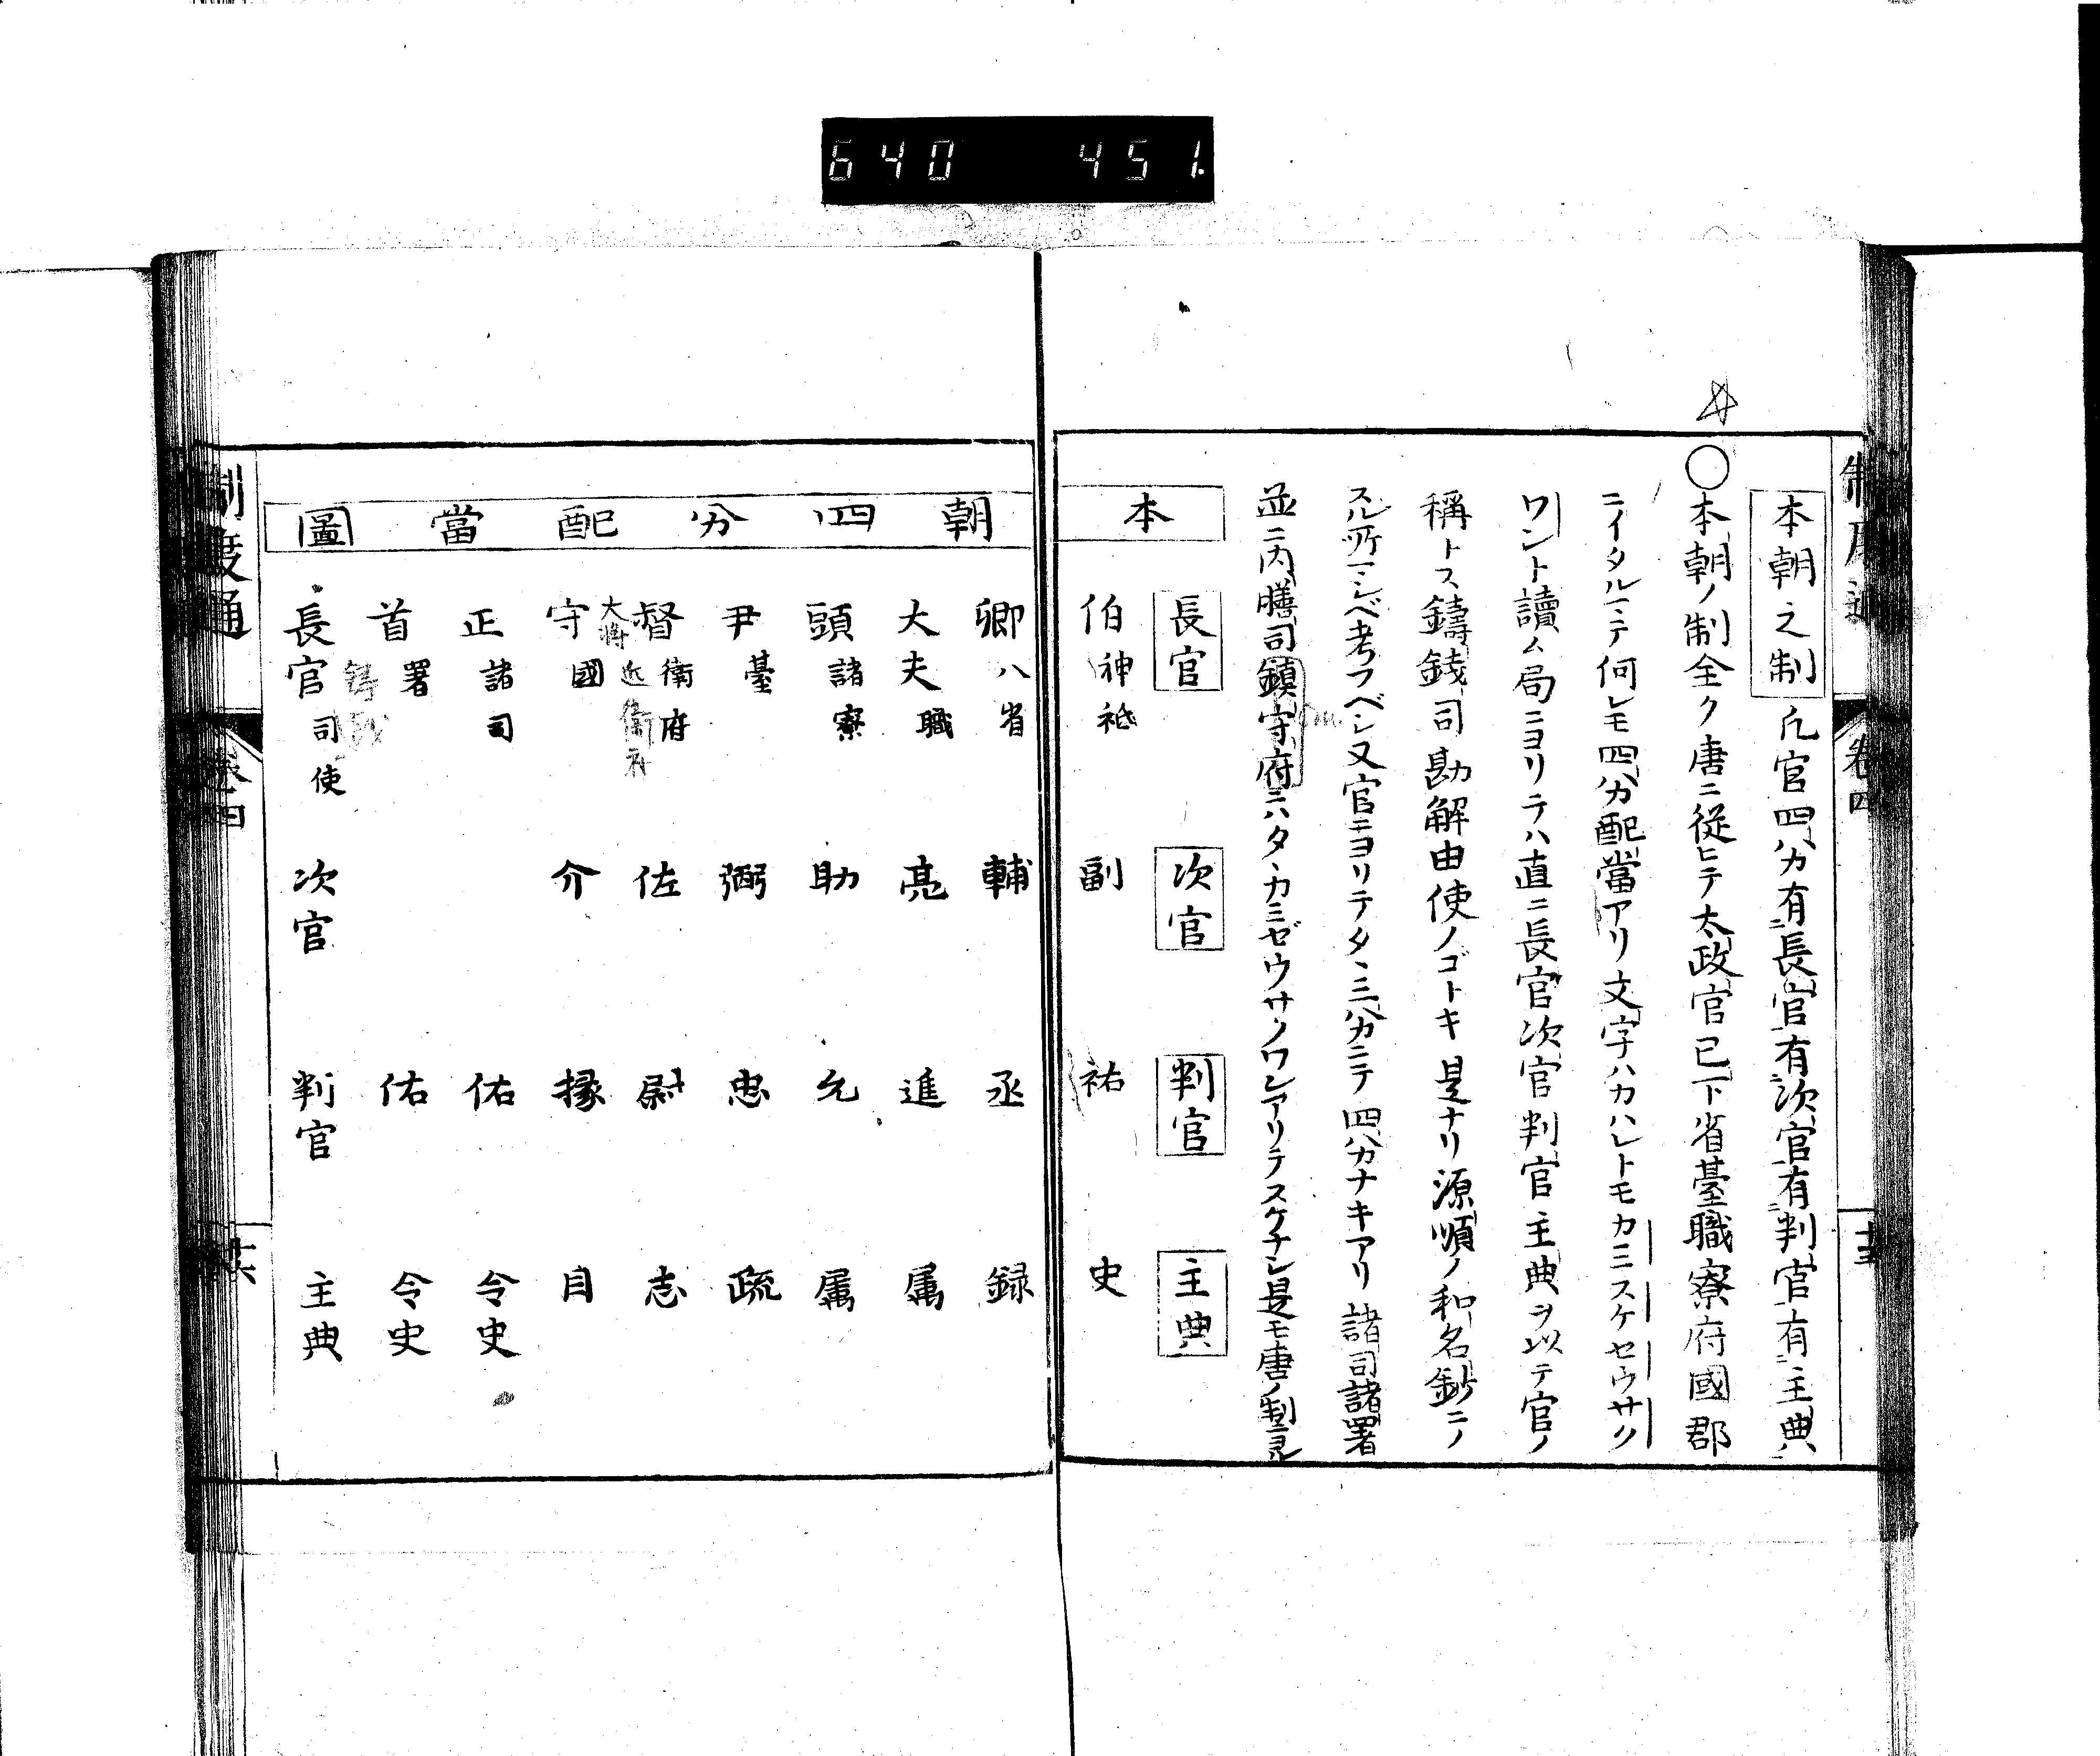 640 451
制度通 卷四
本朝之制 凡官四分有長官有次官有判官有主典
〇本朝ノ制全ク唐ニ從ヒテ太政官已下省臺職寮府國郡
ニイタルマテ何レモ四分配當アリ文字ハカハレトモカミスケセウサク
ワント讀ム局ニヨリテハ直ニ長官次官判官主典ヲ以テ官ノ
稱トス鑄錢司勘解由使ノゴトキ是ナリ源順ノ和名鈔ニノ
スル所ヲミルベシ考フベシ又官ニヨリテタヽ三分ニテ四分ナキアリ諸司諸署
並ニ内膳司鎮守府ニハタヽカミゼウサクワンアリテスケナシ是モ唐ノ制ニ見
本
長官 次官 判官 主典
伯 神祇 副 祐 史
朝四分配當圖
卿 八省 輔 丞 録
大夫 職 亮 進 属
頭 諸寮 助 允 属
尹 臺 弼 忠 疏
督 衛府 佐 尉 志
大将 近衛府
守 國 介 掾 目
正 諸司 佑 令史
首 署 佑 令史
長官 司使 次官 判官 主典
制度通 卷四 十六